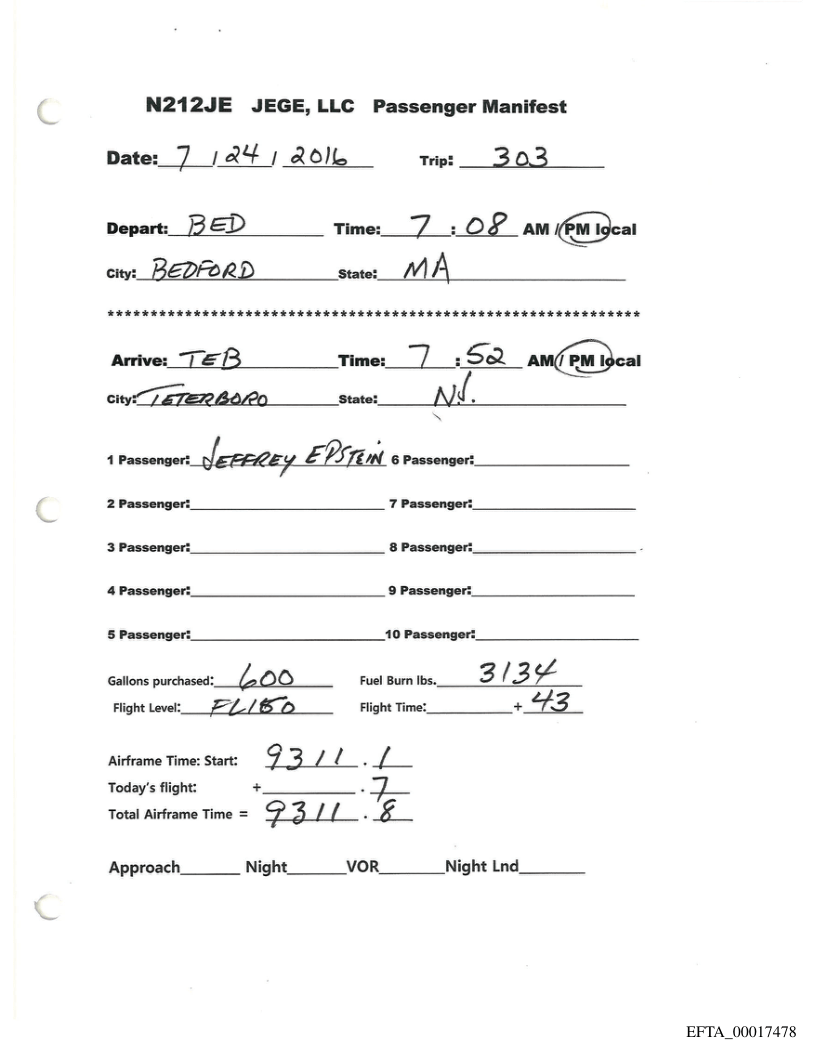 N212JE JEGE, LLC Passenger Manifest
Date: 7 / 24 / 2016 Trip: 303
Depart: BED Time: 7 : 08 AM / PM local
City: BEDFORD State: MA
**************************************************************
Arrive: TEB Time: 7 : 52 AM / PM local
City: TETERBORO State: NJ.
1 Passenger: JEFFREY EPSTEIN 6 Passenger:
2 Passenger: 7 Passenger:
3 Passenger: 8 Passenger:
4 Passenger: 9 Passenger:
5 Passenger: 10 Passenger:
Gallons purchased: 600 Fuel Burn lbs. 3134
Flight Level: Flight Time: + 43
Airframe Time: Start: 9311 . 1
Today's flight: + . 7
Total Airframe Time = 9311 . 8
Approach Night VOR Night Lnd
EFTA_00017478